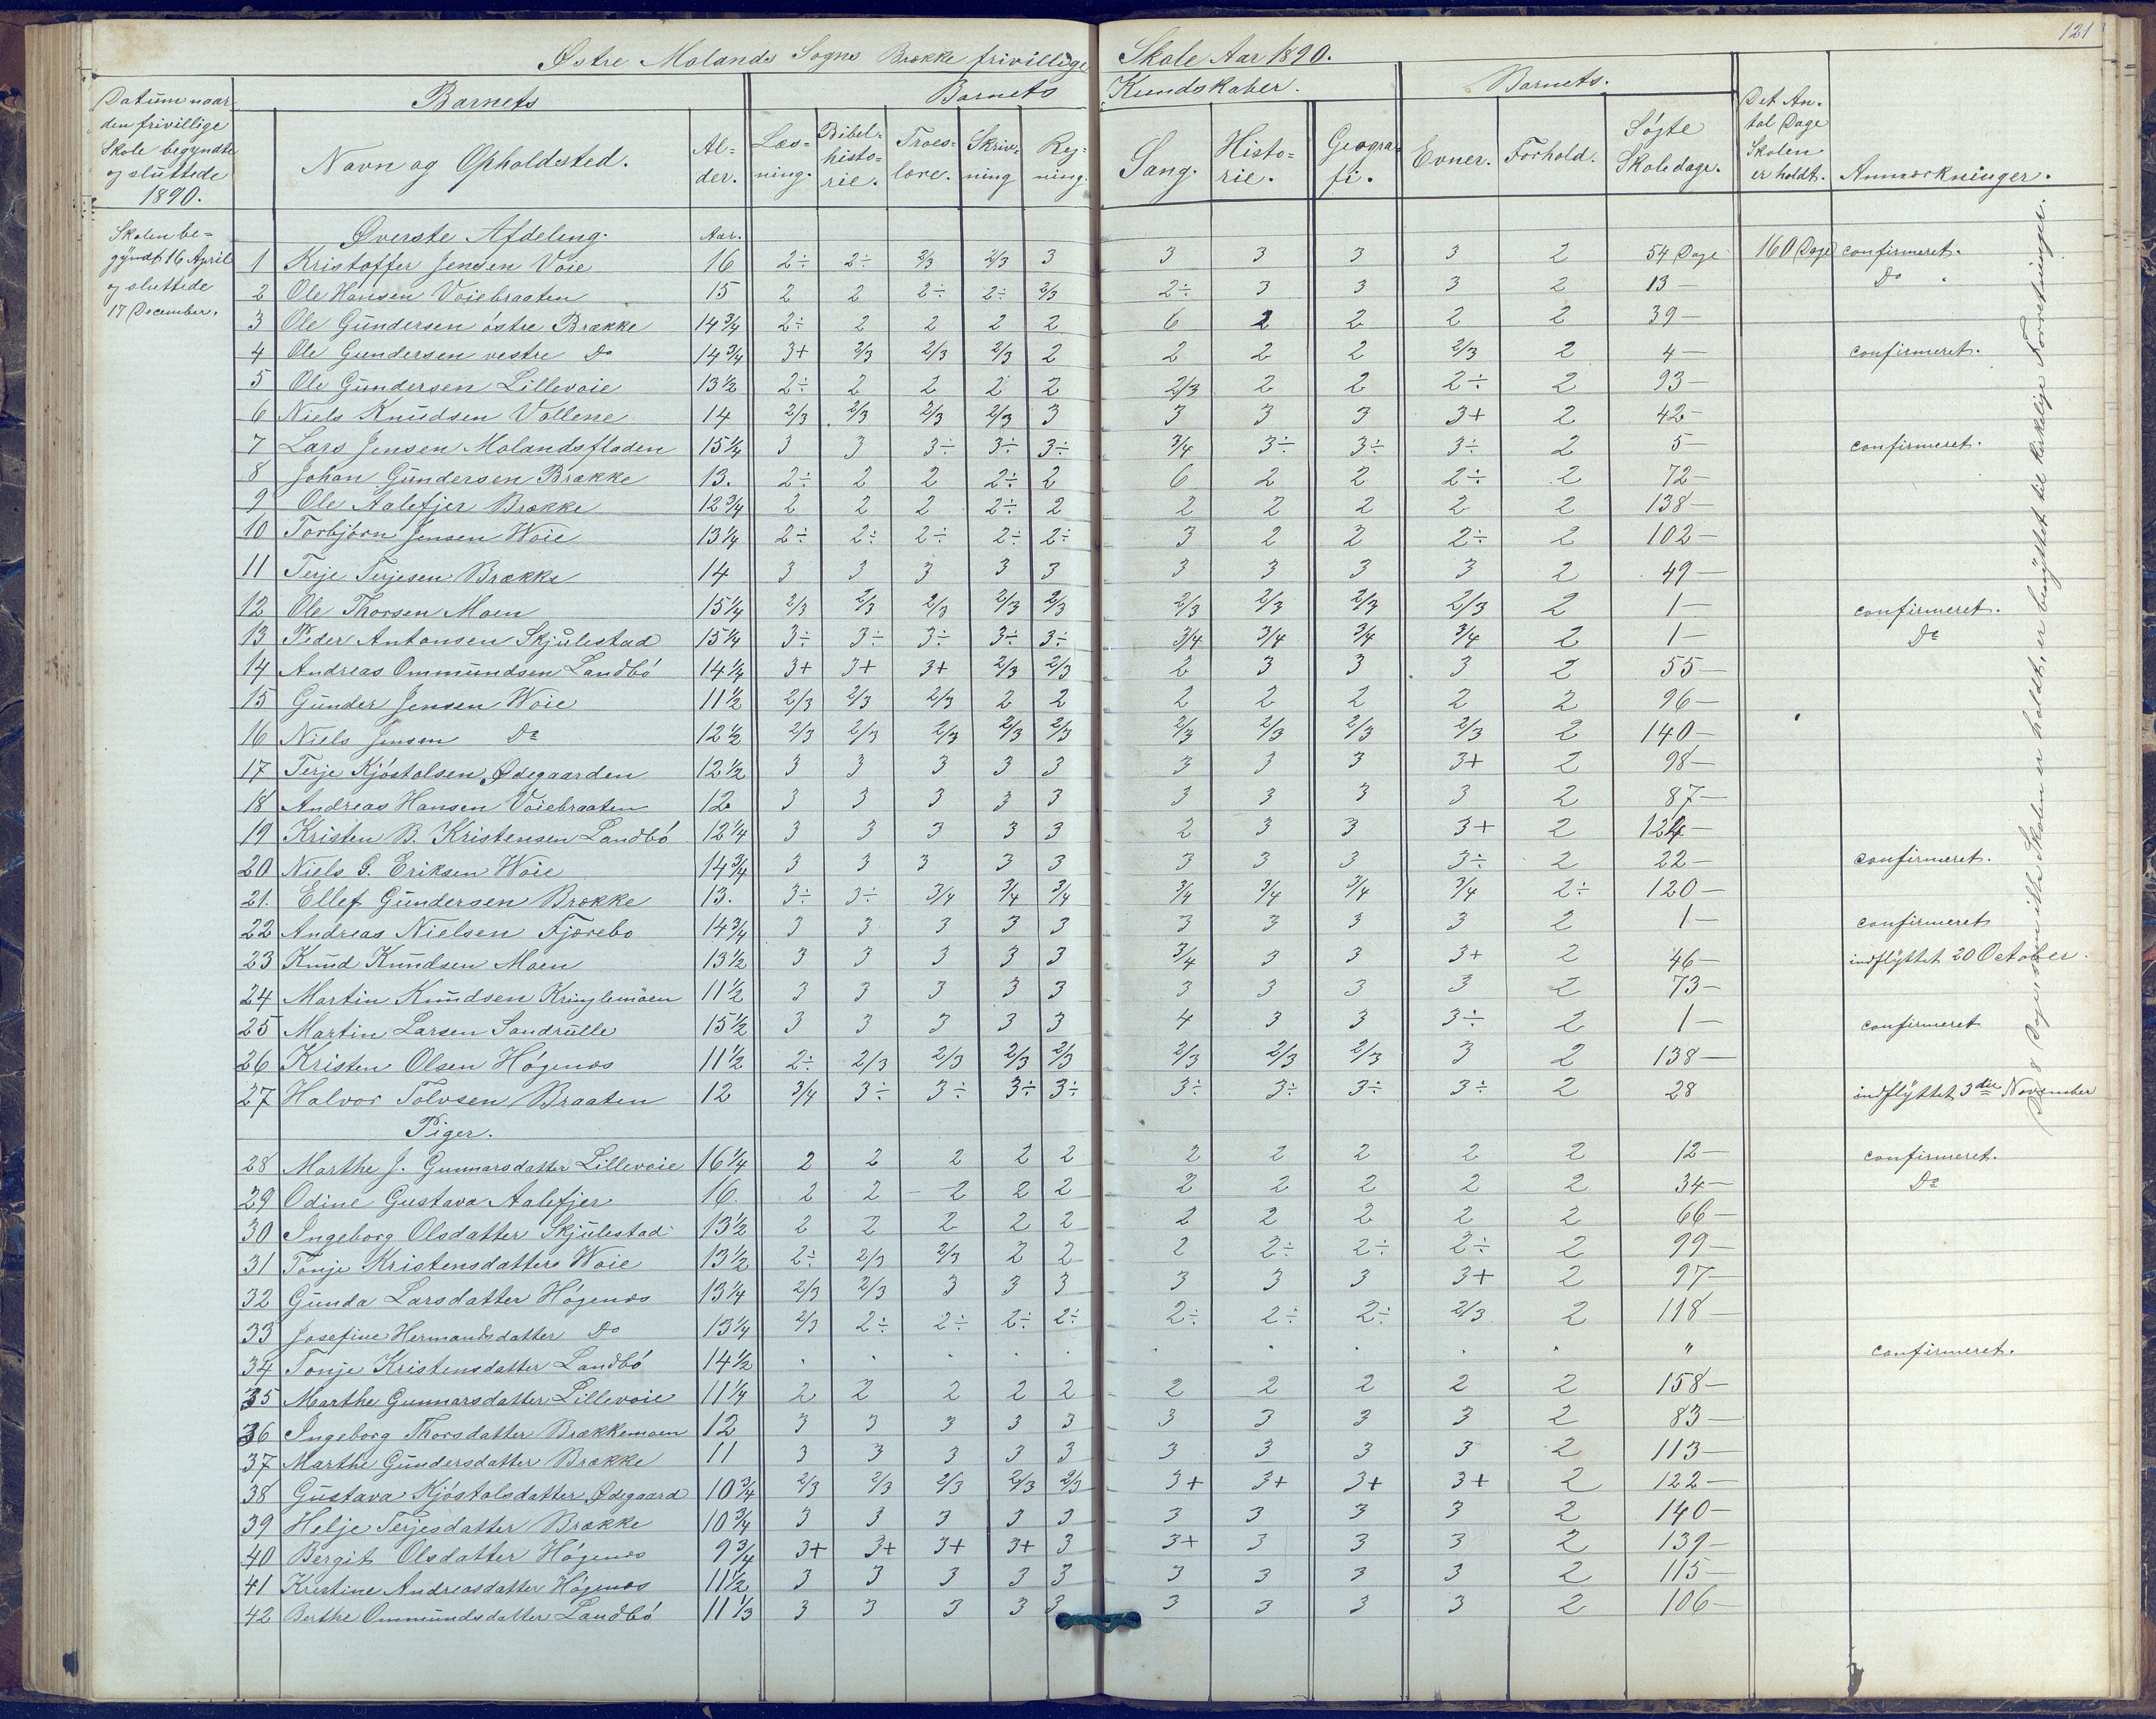 121
Østre Molands Sogns Brække frivillige Skole Aar 1890.
Datum naar den frivillige Skole begyndte og sluttede 1890.
Barnets
Barnets Kundskaber.
Barnets.
Det Antal Dage Skolen er holdt.
Anmærkninger.
Navn og Opholdsted. Alder. Læsning. Bibelhistorie. Troeslære. Skrivning Regning. Sang. Historie. Geografi. Evner. Forhold. Søgte Skoledage.
Skolen be=
gyndt 16 April
og sluttede
17 December.
Øverste Afdeling. Aar.
1 Kristoffer Jensen Voie 16 2÷ 2÷ 2/3 2/3 3 3 3 3 3 2 54 Dage 160 Dage confirmeret.
2 Ole Hansen Voiebraaten 15 2 2 2÷ 2÷ 2/3 2÷ 3 3 3 2 13 — Do
3 Ole Gundersen østre Brække 14 3/4 2÷ 2 2 2 2 6 2 2 2 2 39 —
4 Ole Gundersen vestre Do 14 3/4 3+ 2/3 2/3 2/3 2 2 2 2 2/3 2 4 — confirmeret.
5 Ole Gundersen Lillevoie 13 1/2 2÷ 2 2 2 2 2/3 2 2 2÷ 2 93 —
6 Niels Knudsen Vollene 14 2/3 2/3 2/3 2/3 3 3 3 3 3+ 2 42 —
7 Lars Jensen Molandsfladen 15 1/4 3 3 3÷ 3÷ 3÷ 3/4 3÷ 3÷ 3÷ 2 5 — confirmeret.
8 Johan Gundersen Brække 13. 2÷ 2 2 2÷ 2 6 2 2 2÷ 2 72 —
9 Ole Aalefjer Brække 12 3/4 2 2 2 2÷ 2 2 2 2 2 2 138 —
10 Torbjørn Jensen Woie 13 1/4 2÷ 2÷ 2÷ 2÷ 2÷ 3 2 2 2÷ 2 102 —
11 Terje Terjesen Brække 14 3 3 3 3 3 3 3 3 3 2 49 —
12 Ole Thorsen Moen 15 1/4 2/3 2/3 2/3 2/3 2/3 2/3 2/3 2/3 2/3 2 1 — confirmeret.
13 Peder Antonsen Skjulestad 15 1/4 3÷ 3÷ 3÷ 3÷ 3÷ 3/4 3/4 3/4 3/4 2 1 — Do
14 Andreas Ommundsen Landbø 14 1/4 3+ 3+ 3+ 2/3 2/3 2 3 3 3 2 55 —
15 Gunder Jensen Woie 11 1/2 2/3 2/3 2/3 2 2 2 2 2 2 2 96 —
16 Niels Jensen Do 12 1/2 2/3 2/3 2/3 2/3 2/3 2/3 2/3 2/3 2/3 2 140 —
17 Terje Kjøstolsen Ødegaarden 12 1/2 3 3 3 3 3 3 3 3 3+ 2 98 —
18 Andreas Hansen Voiebraaten 12 3 3 3 3 3 3 3 3 3 2 87 —
19 Kristen B. Kristensen Landbø 12 1/4 3 3 3 3 3 2 3 3 3+ 2 124 —
20 Niels G. Eriksen Woie 14 3/4 3 3 3 3 3 3 3 3 3÷ 2 22 — confirmeret.
21. Ellef Gundersen Brække 13. 3÷ 3÷ 3/4 3/4 3/4 3/4 3/4 3/4 3/4 2÷ 120 —
22 Andreas Nielsen Fjærebo 14 3/4 3 3 3 3 3 3 3 3 3 2 1 — confirmeret
23 Knud Knudsen Moen 13 1/2 3 3 3 3 3 3/4 3 3 3+ 2 46 — indflyttet 20 October.
24 Martin Knudsen Kringlemoen 11 1/2 3 3 3 3 3 3 3 3 3 2 73 —
25 Martin Larsen Sandrulle 15 1/2 3 3 3 3 3 4 3 3 3÷ 2 1 — confirmeret
26 Kristen Olsen Høgenæs 11 1/2 2÷ 2/3 2/3 2/3 2/3 2/3 2/3 2/3 3 2 138 —
27 Halvor Tolvsen Braaten 12 3/4 3÷ 3÷ 3÷ 3÷ 3÷ 3÷ 3÷ 3÷ 2 28 indflyttet 3die November
Piger.
28 Marthe J. Gunnarsdatter Lillevoie 16 1/4 2 2 2 2 2 2 2 2 2 2 12 — confirmeret.
29 Odine Gustava Aalefjer 16. 2 2 2 2 2 2 2 2 2 2 34 — Do
30 Ingeborg Olsdatter Skjulestad 13 1/2 2 2 2 2 2 2 2 2 2 2 66 —
31 Tonje Kristensdatter Woie 13 1/2 2÷ 2/3 2/3 2 2 2 2÷ 2÷ 2÷ 2 99 —
32 Gunda Larsdatter Høgenæs 13 1/4 2/3 2/3 3 3 3 3 3 3 3+ 2 97 —
33 Josefine Hermansdatter Do 13 1/4 2/3 2÷ 2÷ 2÷ 2÷ 2÷ 2÷ 2÷ 2/3 2 118 —
34 Tonje Kristensdatter Landbø 14 1/2 . . . . . . . . . . " confirmeret.
35 Marthe Gunnarsdatter Lillevoie 11 1/4 2 2 2 2 2 2 2 2 2 2 158 —
36 Ingeborg Thorsdatter Brækkemoen 12 3 3 3 3 3 3 3 3 3 2 83 —
37 Marthe Gundersdatter Brække 11 3 3 3 3 3 3 3 3 3 2 113 —
38 Gustava Kjøstolsdatter Ødegaard 10 3/4 2/3 2/3 2/3 2/3 2/3 3+ 3+ 3+ 3+ 2 122 —
39 Helje Terjesdatter Brække 10 3/4 3 3 3 3 3 3 3 3 3 2 140 —
40 Bergit Olsdatter Høgenæs 9 3/4 3+ 3+ 3+ 3+ 3 3+ 3 3 3 2 139 —
41 Kristine Andreasdatter Høgenæs 11 1/2 3 3 3 3 3 3 3 3 3 2 115 —
42 Berthe Ommundsdatter Landbø 11 1/3 3 3 3 3 3 3 3 3 3 2 106 —
De 8 Dage som ikke Skolen er holdt, er benyttet til kirkelige Forretninger.